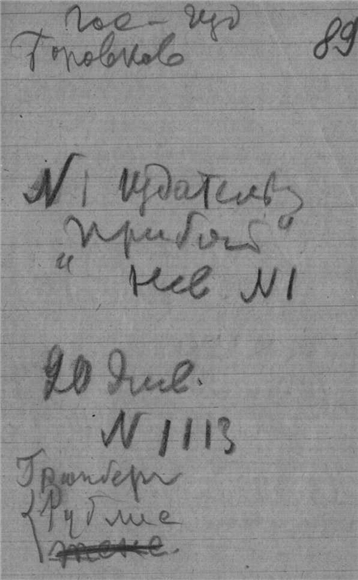 гос – изд
89
Горовков
N 1 издательв
„Прибой“
Нев N 1
20 янв.
N 1113
Грюнберг
Рублис